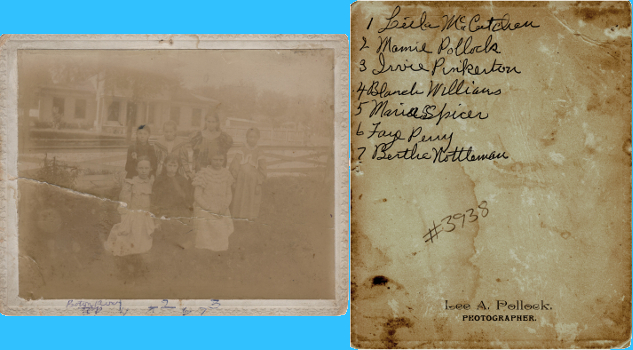 1 Leila McCutchen
2 Mamie Pollock
3 Irvie Pinkerton
4 Blanch Williams
5 Marie Spicer
6 Faye Perry
7 Bertha Nottleman
#3938
Lee A. Pollock.
PHOTOGRAPHER.
2 3